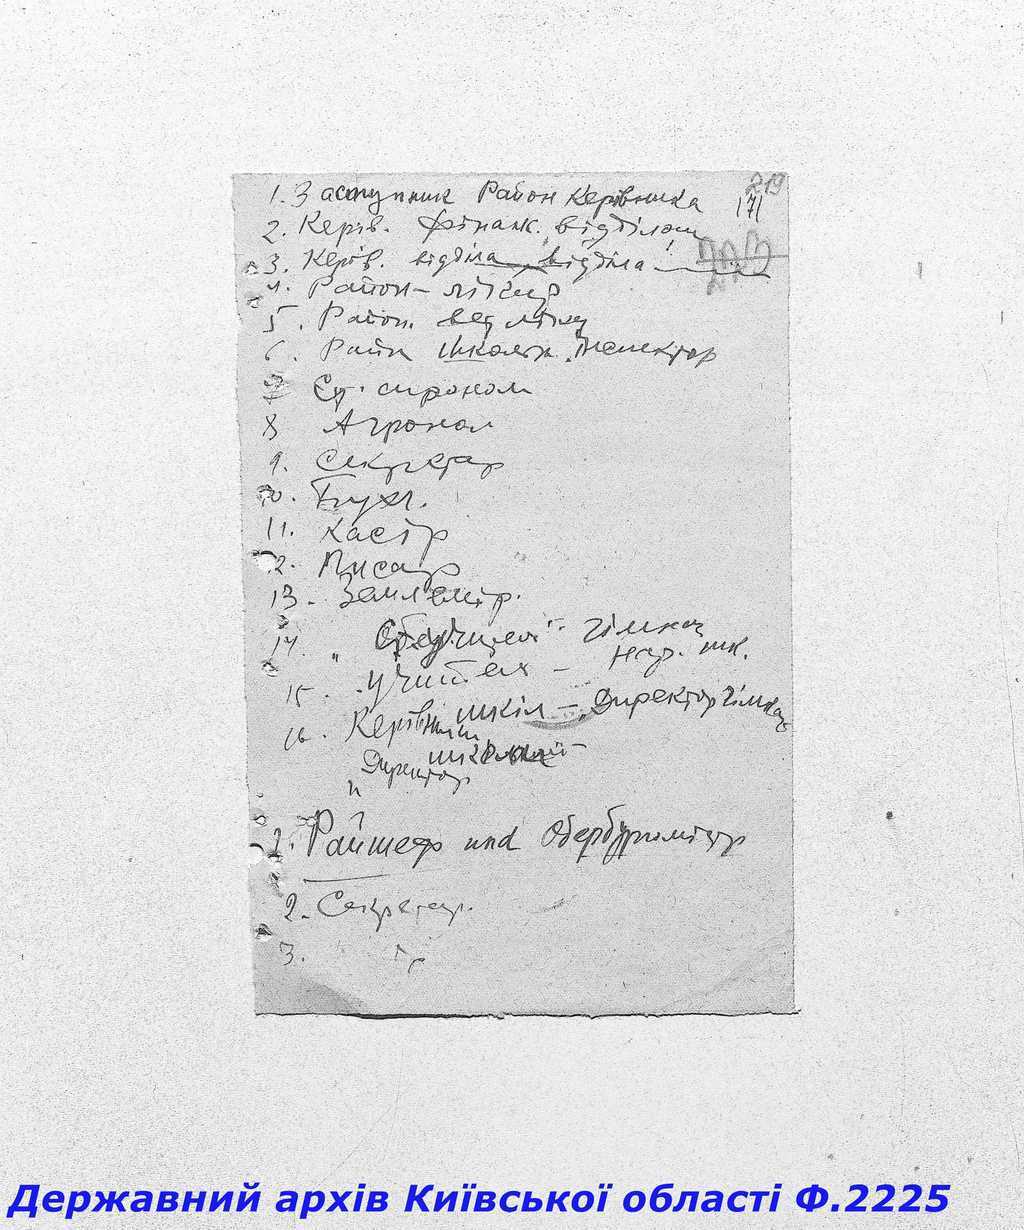 219
171
1. Заступник Район Керівника
2. Керів. фінанс. відділом
3. Керів. відділа відділа
4. Район - лікар
5. Район.
6. Район Школьн. Інспектор
7 Ст. агроном
8 Агроном
9. Секретар
10. Бухг.
11. Касір
12. Писар
13. Землемір.
14. " - гімназ
нар. шк.
15. учителя -
16. Керівники шкіл - Директор гімназ
Директор
"
1. Райшеф und Обербургомістр
2. Секретар.
3.
Державний архів Київської області Ф.2225